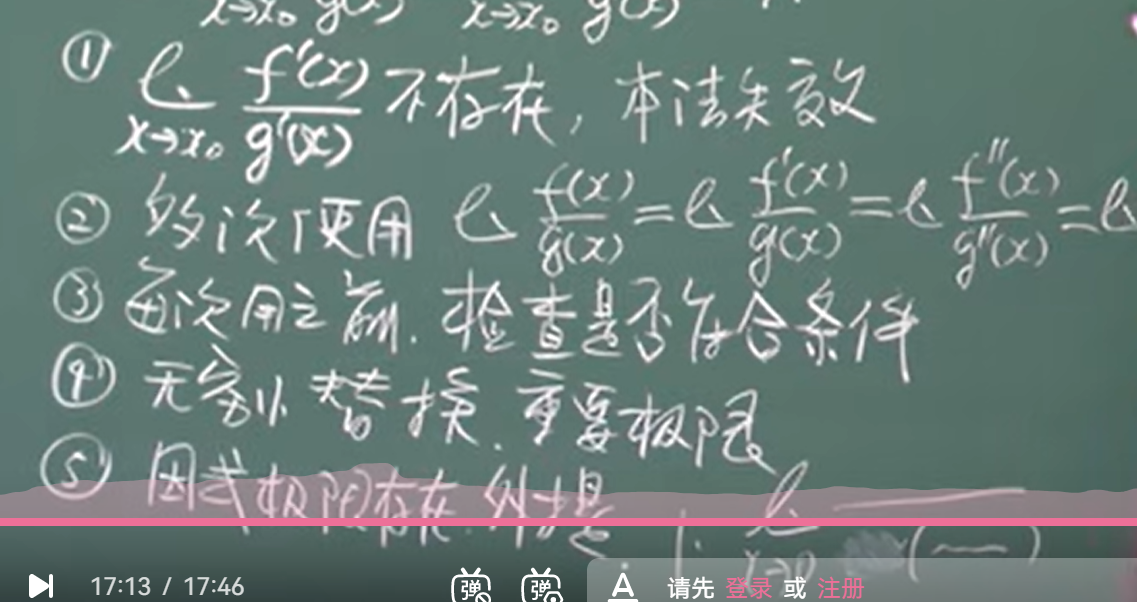 x→x₀ g(x) x→x₀ g(x)
① lim x→x₀ f'(x)/g'(x) 不存在,本法失效
② 多次使用 lim f(x)/g(x) = lim f'(x)/g'(x) = lim f''(x)/g''(x) = lim
③ 每次用之前.检查是否符合条件
④ 无穷小替换.重要极限
⑤ 因式极限存在.外提
lim x→0
17:13 / 17:46 弹 弹 A 请先 登录 或 注册